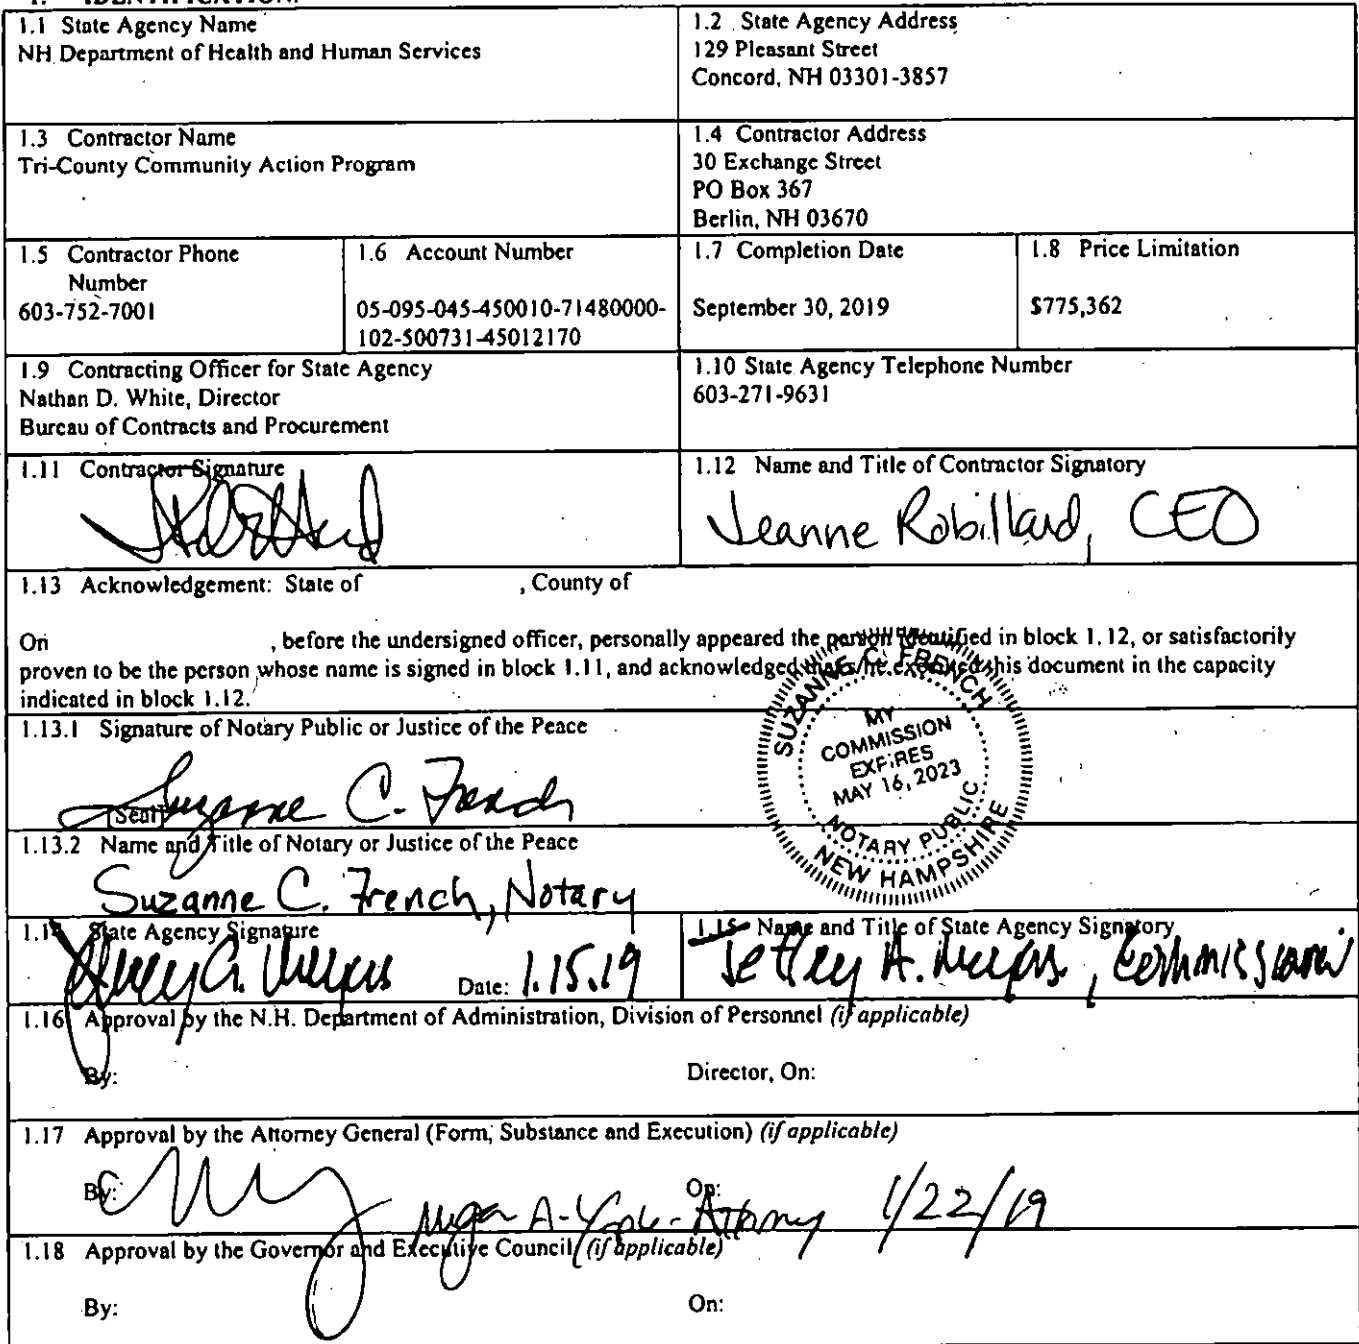 1. IDENTIFICATION.
1.1 State Agency Name
NH Department of Health and Human Services
1.2 State Agency Address
129 Pleasant Street
Concord, NH 03301-3857
1.3 Contractor Name
Tri-County Community Action Program
1.4 Contractor Address
30 Exchange Street
PO Box 367
Berlin, NH 03670
1.5 Contractor Phone
Number
603-752-7001
1.6 Account Number
05-095-045-450010-71480000-
102-500731-45012170
1.7 Completion Date
September 30, 2019
1.8 Price Limitation
$775,362
1.9 Contracting Officer for State Agency
Nathan D. White, Director
Bureau of Contracts and Procurement
1.10 State Agency Telephone Number
603-271-9631
1.11 Contractor Signature
1.12 Name and Title of Contractor Signatory
Jeanne Robillard, CEO
1.13 Acknowledgement: State of , County of
On , before the undersigned officer, personally appeared the person identified in block 1.12, or satisfactorily
proven to be the person whose name is signed in block 1.11, and acknowledged that s/he executed this document in the capacity
indicated in block 1.12.
1.13.1 Signature of Notary Public or Justice of the Peace
SUZANNE C. FRENCH
MY
COMMISSION
EXPIRES
MAY 16, 2023
NOTARY PUBLIC
NEW HAMPSHIRE
[Seal] Suzanne C. French
1.13.2 Name and Title of Notary or Justice of the Peace
Suzanne C. French, Notary
1.14 State Agency Signature
Date: 1.15.19
1.15 Name and Title of State Agency Signatory
Jeffrey A. Meyers, Commissioner
1.16 Approval by the N.H. Department of Administration, Division of Personnel (if applicable)
By: Director, On:
1.17 Approval by the Attorney General (Form, Substance and Execution) (if applicable)
By: On:
A. Attorney 1/22/19
1.18 Approval by the Governor and Executive Council (if applicable)
By: On: